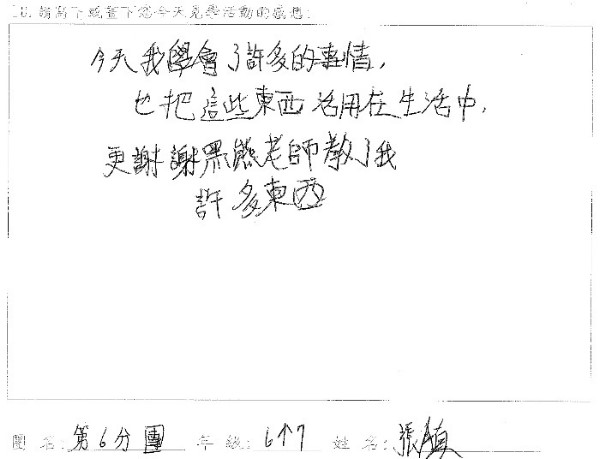 10.請寫下或畫下您今天見學活動的感想:
今天我學會了許多的事情,
也把這些東西活用在生活中,
更謝謝黑熊老師教了我
許多東西
團名:第6分團 年級:6↑7 姓名:張